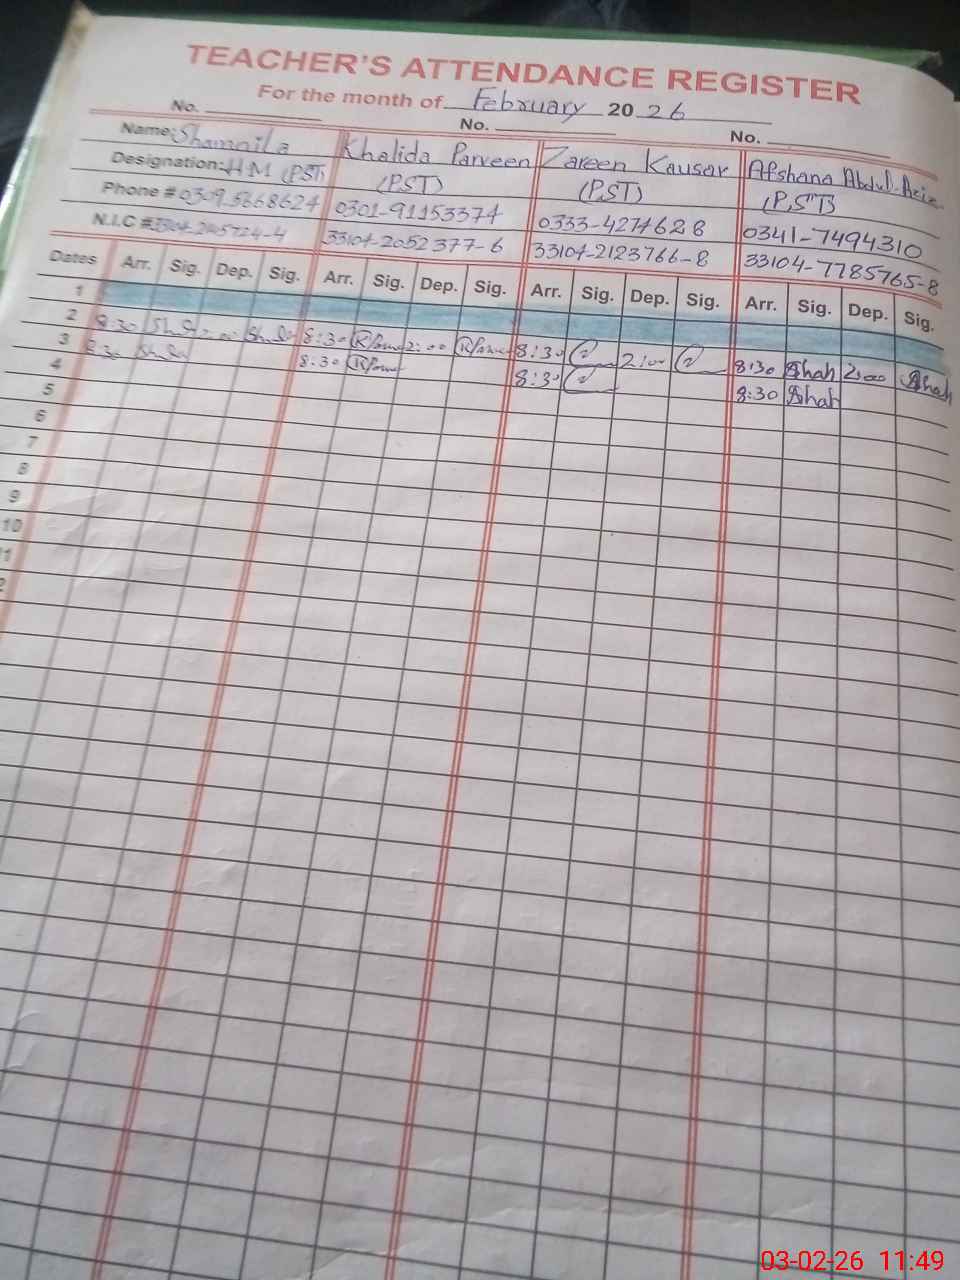 TEACHER'S ATTENDANCE REGISTER
For the month of February 20 26
No. No. No.
Name: Shamaila Khalida Parveen Zareen Kausar Afshana Abdul Aziz
Designation: HM (PST) (PST) (PST) (PST)
Phone # 0301-91153374 0333-4274628 0341-7494310
N.I.C # 33104-2052377-6 33104-2123766-8 33104-7785765-8
Dates Arr. Sig. Dep. Sig. Arr. Sig. Dep. Sig. Arr. Sig. Dep. Sig. Arr. Sig. Dep. Sig.
1
2 8:30 8:30 2:00 8:30 2:00 8:30 Shah 2:00 Shah
3 8:30 8:30 8:30 8:30 Shah
4
5
6
7
8
9
10
1
2
03-02-26 11:49